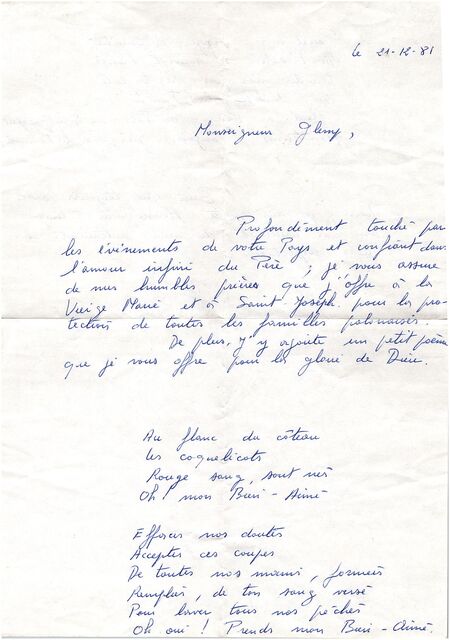 le 21-12-81
Monseigneur Glemp,
Profondément touché par
les évènements de votre Pays et confiant dans
l'amour infini du Père ; je vous assure
de mes humbles prières que j'offre à la
Vierge Marie et à Saint Joseph pour la pro-
tection de toutes les familles polonaises.
De plus, j'y ajoute un petit poème
que je vous offre pour la gloire de Dieu.
Au flanc du côteau
Les coquelicots
Rouge sang, sont nés
Oh ! mon Bien-Aimé
Effaces nos doutes
Acceptes ces coupes
De toutes nos mains, formées
Remplies, de ton sang versé
Pour laver tous nos péchés
Oh oui ! Prends mon Bien-Aimé